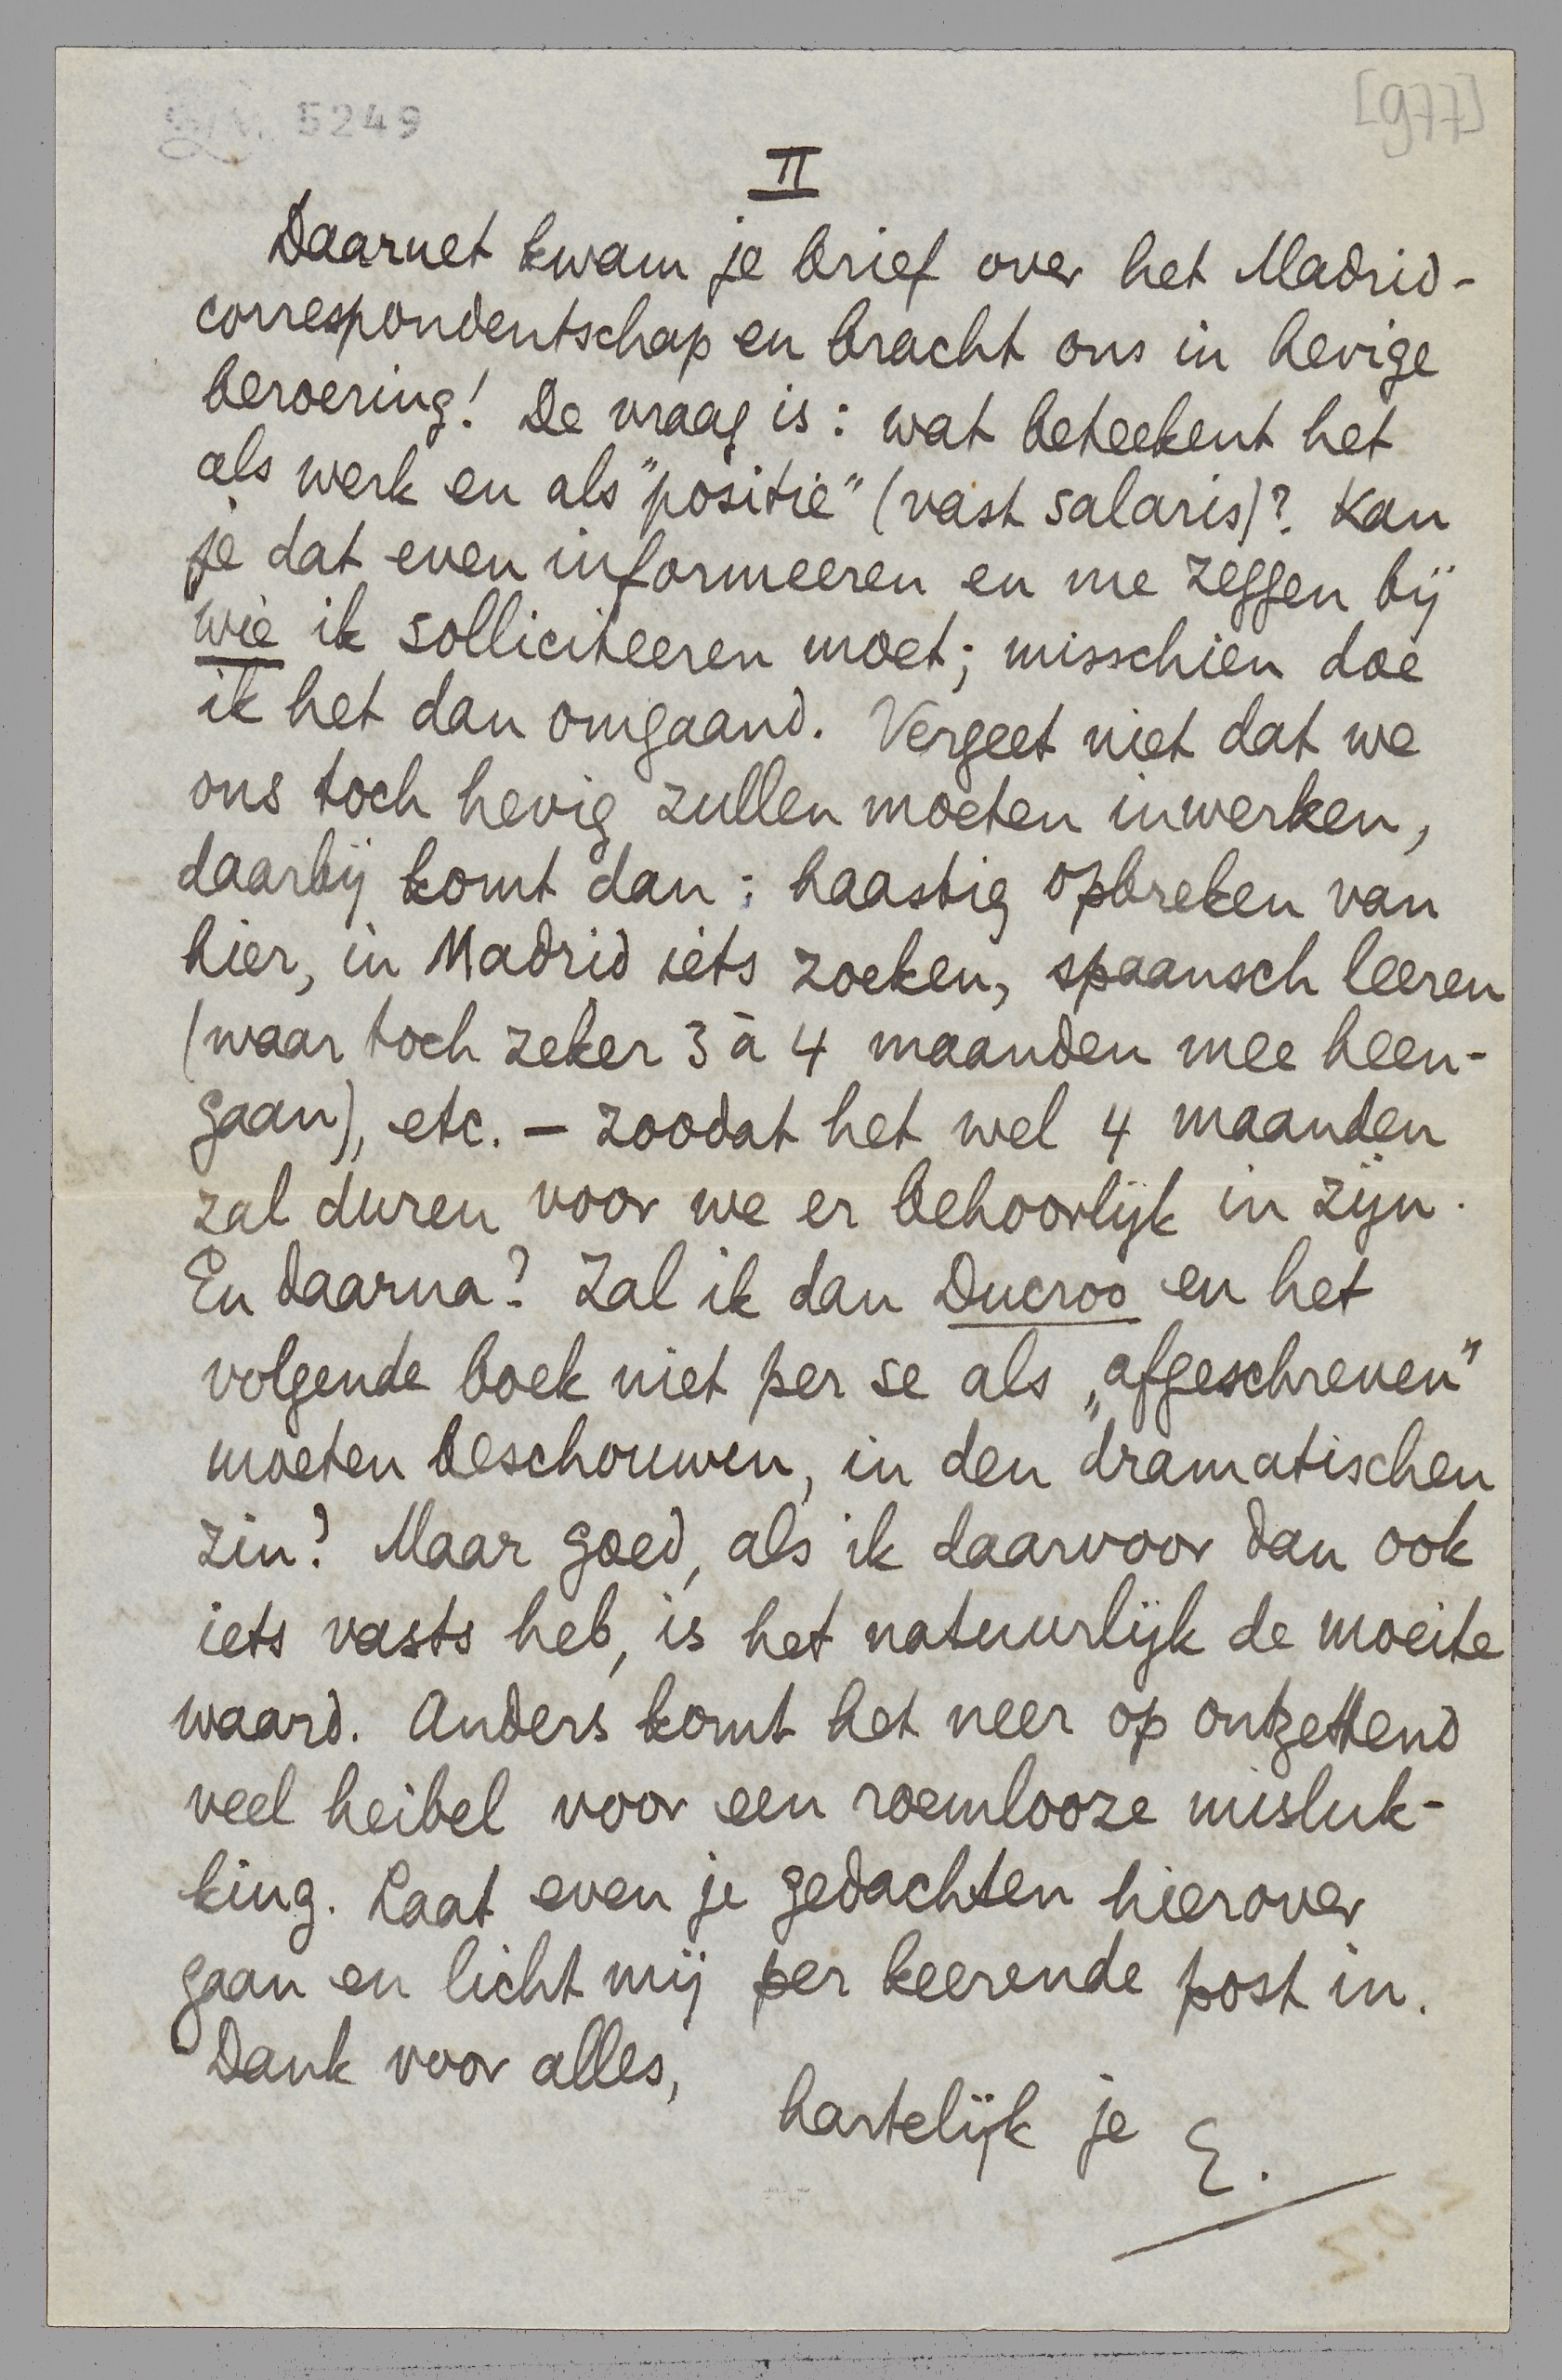 5249
[977]
II
Daarnet kwam je brief over het Madrid-
correspondentschap en bracht ons in hevige
beroering! De vraag is: wat beteekent het
als werk en als "positie" (vast salaris)? Kan
je dat even informeeren en me zeggen bij
wie ik solliciteeren moet; misschien doe
ik het dan omgaand. Vergeet niet dat we
ons toch hevig zullen moeten inwerken,
daarbij komt dan: haastig opbreken van
hier, in Madrid iets zoeken, spaansch leeren
(waar toch zeker 3 à 4 maanden mee heen-
gaan), etc. — zoodat het wel 4 maanden
zal duren voor we er behoorlijk in zijn.
En daarna? Zal ik dan Ducroo en het
volgende boek niet per se als „afgeschreven"
moeten beschouwen, in den dramatischen
zin? Maar goed, als ik daarvoor dan ook
iets vasts heb, is het natuurlijk de moeite
waard. Anders komt het neer op ontzettend
veel heibel voor een roemlooze misluk-
king. Laat even je gedachten hierover
gaan en licht mij per keerende post in.
Dank voor alles,
hartelijk je E.